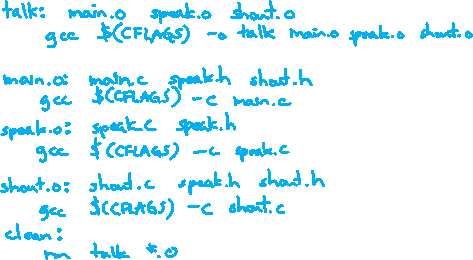 talk: main.o speak.o shout.o
gcc $(CFLAGS) -o talk main.o speak.o shout.o
main.o: main.c speak.h shout.h
gcc $(CFLAGS) -c main.c
speak.o: speak.c speak.h
gcc $(CFLAGS) -c speak.c
shout.o: shout.c speak.h shout.h
gcc $(CFLAGS) -c shout.c
clean:
rm talk *.o